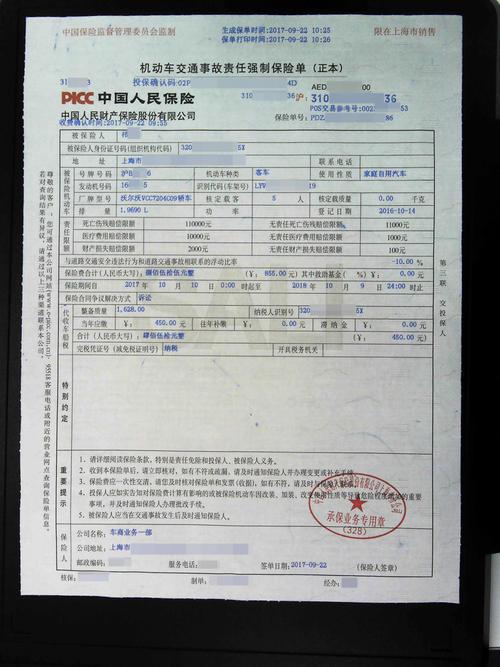 中国保险监督管理委员会监制
生成保单时间:2017-09-22 10:25
保单打印时间:2017-09-22 10:26
限在上海市销售
机动车交通事故责任强制保险单(正本)
投保确认码:02P 4D AED 00
310 36 沪:310 36
PICC 中国人民保险
POS交易参考号:0023
中国人民财产保险股份有限公司
保险单号:PDZ 86
收费确认时间:2017-09-22 09:55
被保险人
被保险人身份证号码(组织机构代码) 320 5X
地址 上海市 联系电话
被保险机动车
号牌号码 机动车种类 客车 使用性质 家庭自用汽车
发动机号 识别代码(车架号) LYV 19
厂牌型号 沃尔沃VCC7204C09轿车 核定载客 5 人 核定载质量 0.00 千克
排量 1.9690 L 功率 登记日期 2016-10-14
责任限额
死亡伤残赔偿限额 110000元 无责任死亡伤残赔偿限额 11000元
医疗费用赔偿限额 10000元 无责任医疗费用赔偿限额 1000元
财产损失赔偿限额 2000元 无责任财产损失赔偿限额 100元
与道路交通安全违法行为和道路交通事故相联系的浮动比率 -10.00 %
保险费合计(人民币大写):捌佰伍拾伍元整 (¥: 855.00 元)其中救助基金( %)¥: 0.00 元
保险期间自 2017 年 10 月 10 日 0:00 时起至 2018 年 10 月 9 日 24:00 时止
保险合同争议解决方式 诉讼
代收车船税
整备质量 1,628.00 纳税人识别号 320 5X
当年应缴 ¥: 450.00 元 往年补缴 ¥: 0.00 元 滞纳金 ¥: 0.00 元
合计(人民币大写):肆佰伍拾元整 (¥: 450.00 元)
完税凭证号(减免税证明号) 纳税 开具税务机关
特别约定
重要提示
1. 请详细阅读保险条款,特别是责任免除和投保人、被保险人义务。
2. 收到本保险单后,请立即核对,如有不符或疏漏,请及时通知保险人并办理变更或补充手续。
3. 保险费应一次性交清,请您及时核对保险单和发票(收据),如有不符,请及时与保险人联系。
4. 投保人应如实告知对保险费计算有影响的或被保险机动车因改装、加装、改变使用性质等导致危险程度增加的重要事项,并及时通知保险人办理批改手续。
5. 被保险人应当在交通事故发生后及时通知保险人。
保险人
公司名称:车商业务一部
公司地址:上海市
邮政编码: 服务电话: 签单日期:2017-09-22 (保险人签章)
核保: 制单: 经办:
承保业务专用章
(328)
第三联 交投保人
尊敬的客户:您可通过本公司网站(www.e-picc.com.cn)、95518客服电话或附近的营业网点查询保单信息。若对查询结果有异议,请通过以上三种渠道联系本公司。